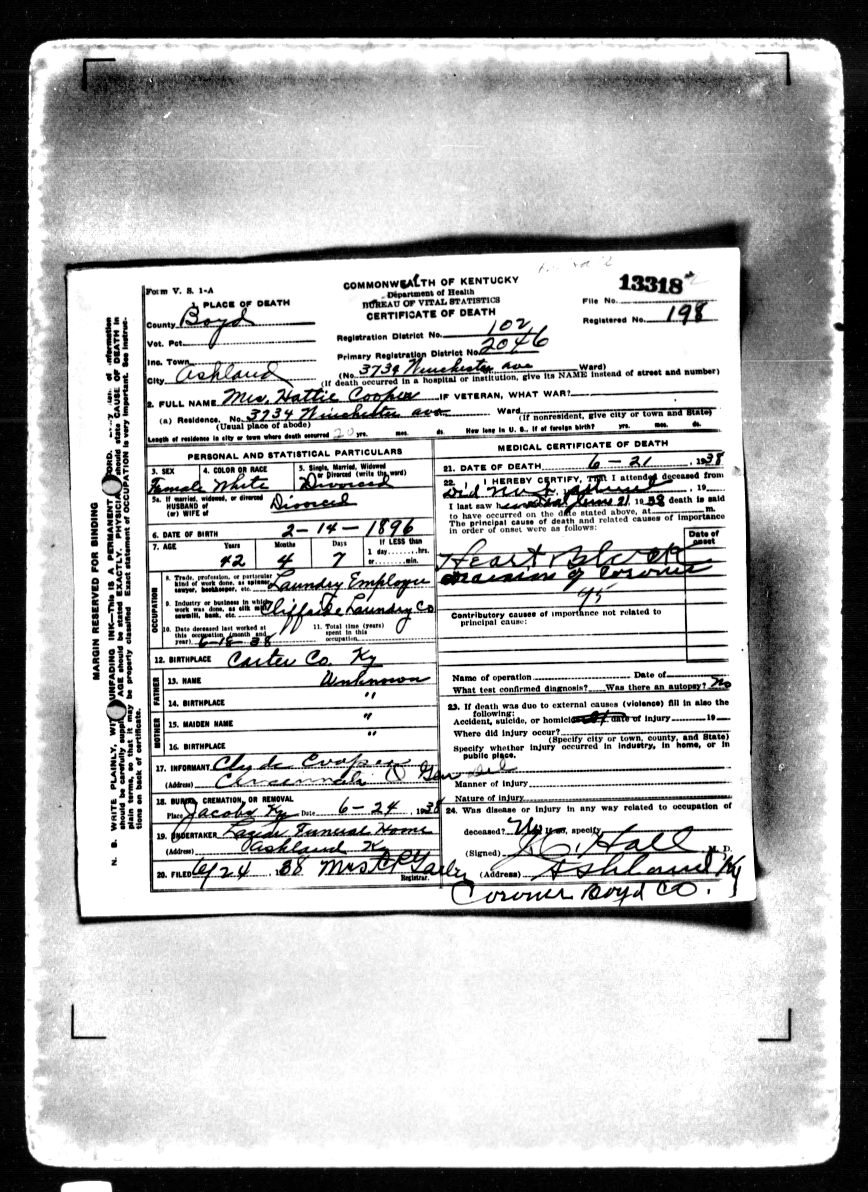 Form V. S. 1-A
COMMONWEALTH OF KENTUCKY
Department of Health
BUREAU OF VITAL STATISTICS
CERTIFICATE OF DEATH
13318
File No.
Registered No. 198
1. PLACE OF DEATH
County Boyd
Vot. Pct.
Inc. Town
City Ashland
Registration District No. 102
Primary Registration District No. 2046
(No. 3734 Winchester ave Ward)
(If death occurred in a hospital or institution, give its NAME instead of street and number)
2. FULL NAME Mrs. Hattie Cooper IF VETERAN, WHAT WAR?
(a) Residence. No. 3734 Winchester ave Ward
(Usual place of abode) (If nonresident, give city or town and State)
Length of residence in city or town where death occurred 20 yrs. mos. ds. How long in U. S., if of foreign birth? yrs. mos. ds.
PERSONAL AND STATISTICAL PARTICULARS
3. SEX 4. COLOR OR RACE 5. Single, Married, Widowed or Divorced (write the word)
Female White Divorced
5a. If married, widowed, or divorced
HUSBAND of
(or) WIFE of Divorced
6. DATE OF BIRTH 2-14-1896
7. AGE Years Months Days If LESS than
1 day........hrs.
42 4 7 or........min.
OCCUPATION
8. Trade, profession, or particular
kind of work done, as spinner,
sawyer, bookkeeper, etc. Laundry Employee
9. Industry or business in which
work was done, as silk mill,
sawmill, bank, etc. Cliffside Laundry Co
10. Date deceased last worked at
this occupation (month and
year) 6-18-38
11. Total time (years)
spent in this
occupation
12. BIRTHPLACE Carter Co. Ky
FATHER
13. NAME Unknown
14. BIRTHPLACE "
MOTHER
15. MAIDEN NAME "
16. BIRTHPLACE "
17. INFORMANT Clyde Cooper
(Address) Cincinnati O
18. BURIAL, CREMATION, OR REMOVAL
Place Jacobs Ky Date 6-24, 1938
19. UNDERTAKER Funeral Home
(Address) Ashland K
20. FILED 6/24 1938 Mrs
Registrar.
MEDICAL CERTIFICATE OF DEATH
21. DATE OF DEATH 6-21, 1938
22. I HEREBY CERTIFY, That I attended deceased from
Did not , 19
I last saw h June 21 1938 death is said
to have occurred on the date stated above, at m.
The principal cause of death and related causes of importance
in order of onset were as follows:
Date of
onset
Heart Block
of Coroner
95
Contributory causes of importance not related to
principal cause:
Name of operation Date of
What test confirmed diagnosis? Was there an autopsy? No
23. If death was due to external causes (violence) fill in also the
following:
Accident, suicide, or homicide date of injury 19
Where did injury occur?
(Specify city or town, county, and State)
Specify whether injury occurred in industry, in home, or in
public place.
Manner of injury
Nature of injury
24. Was disease or injury in any way related to occupation of
deceased? No If so, specify
(Signed) Hall M. D.
(Address) Ashland Ky
Coroner Boyd Co.
MARGIN RESERVED FOR BINDING